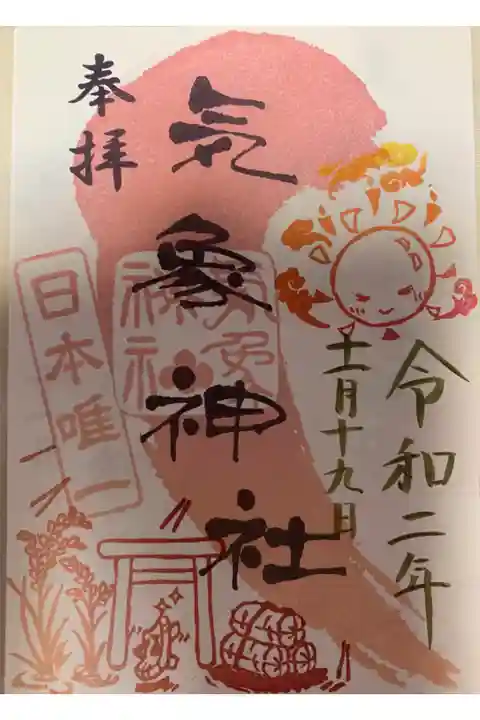 令和二年
十一月十九日
気象神社
奉拝
日本唯一